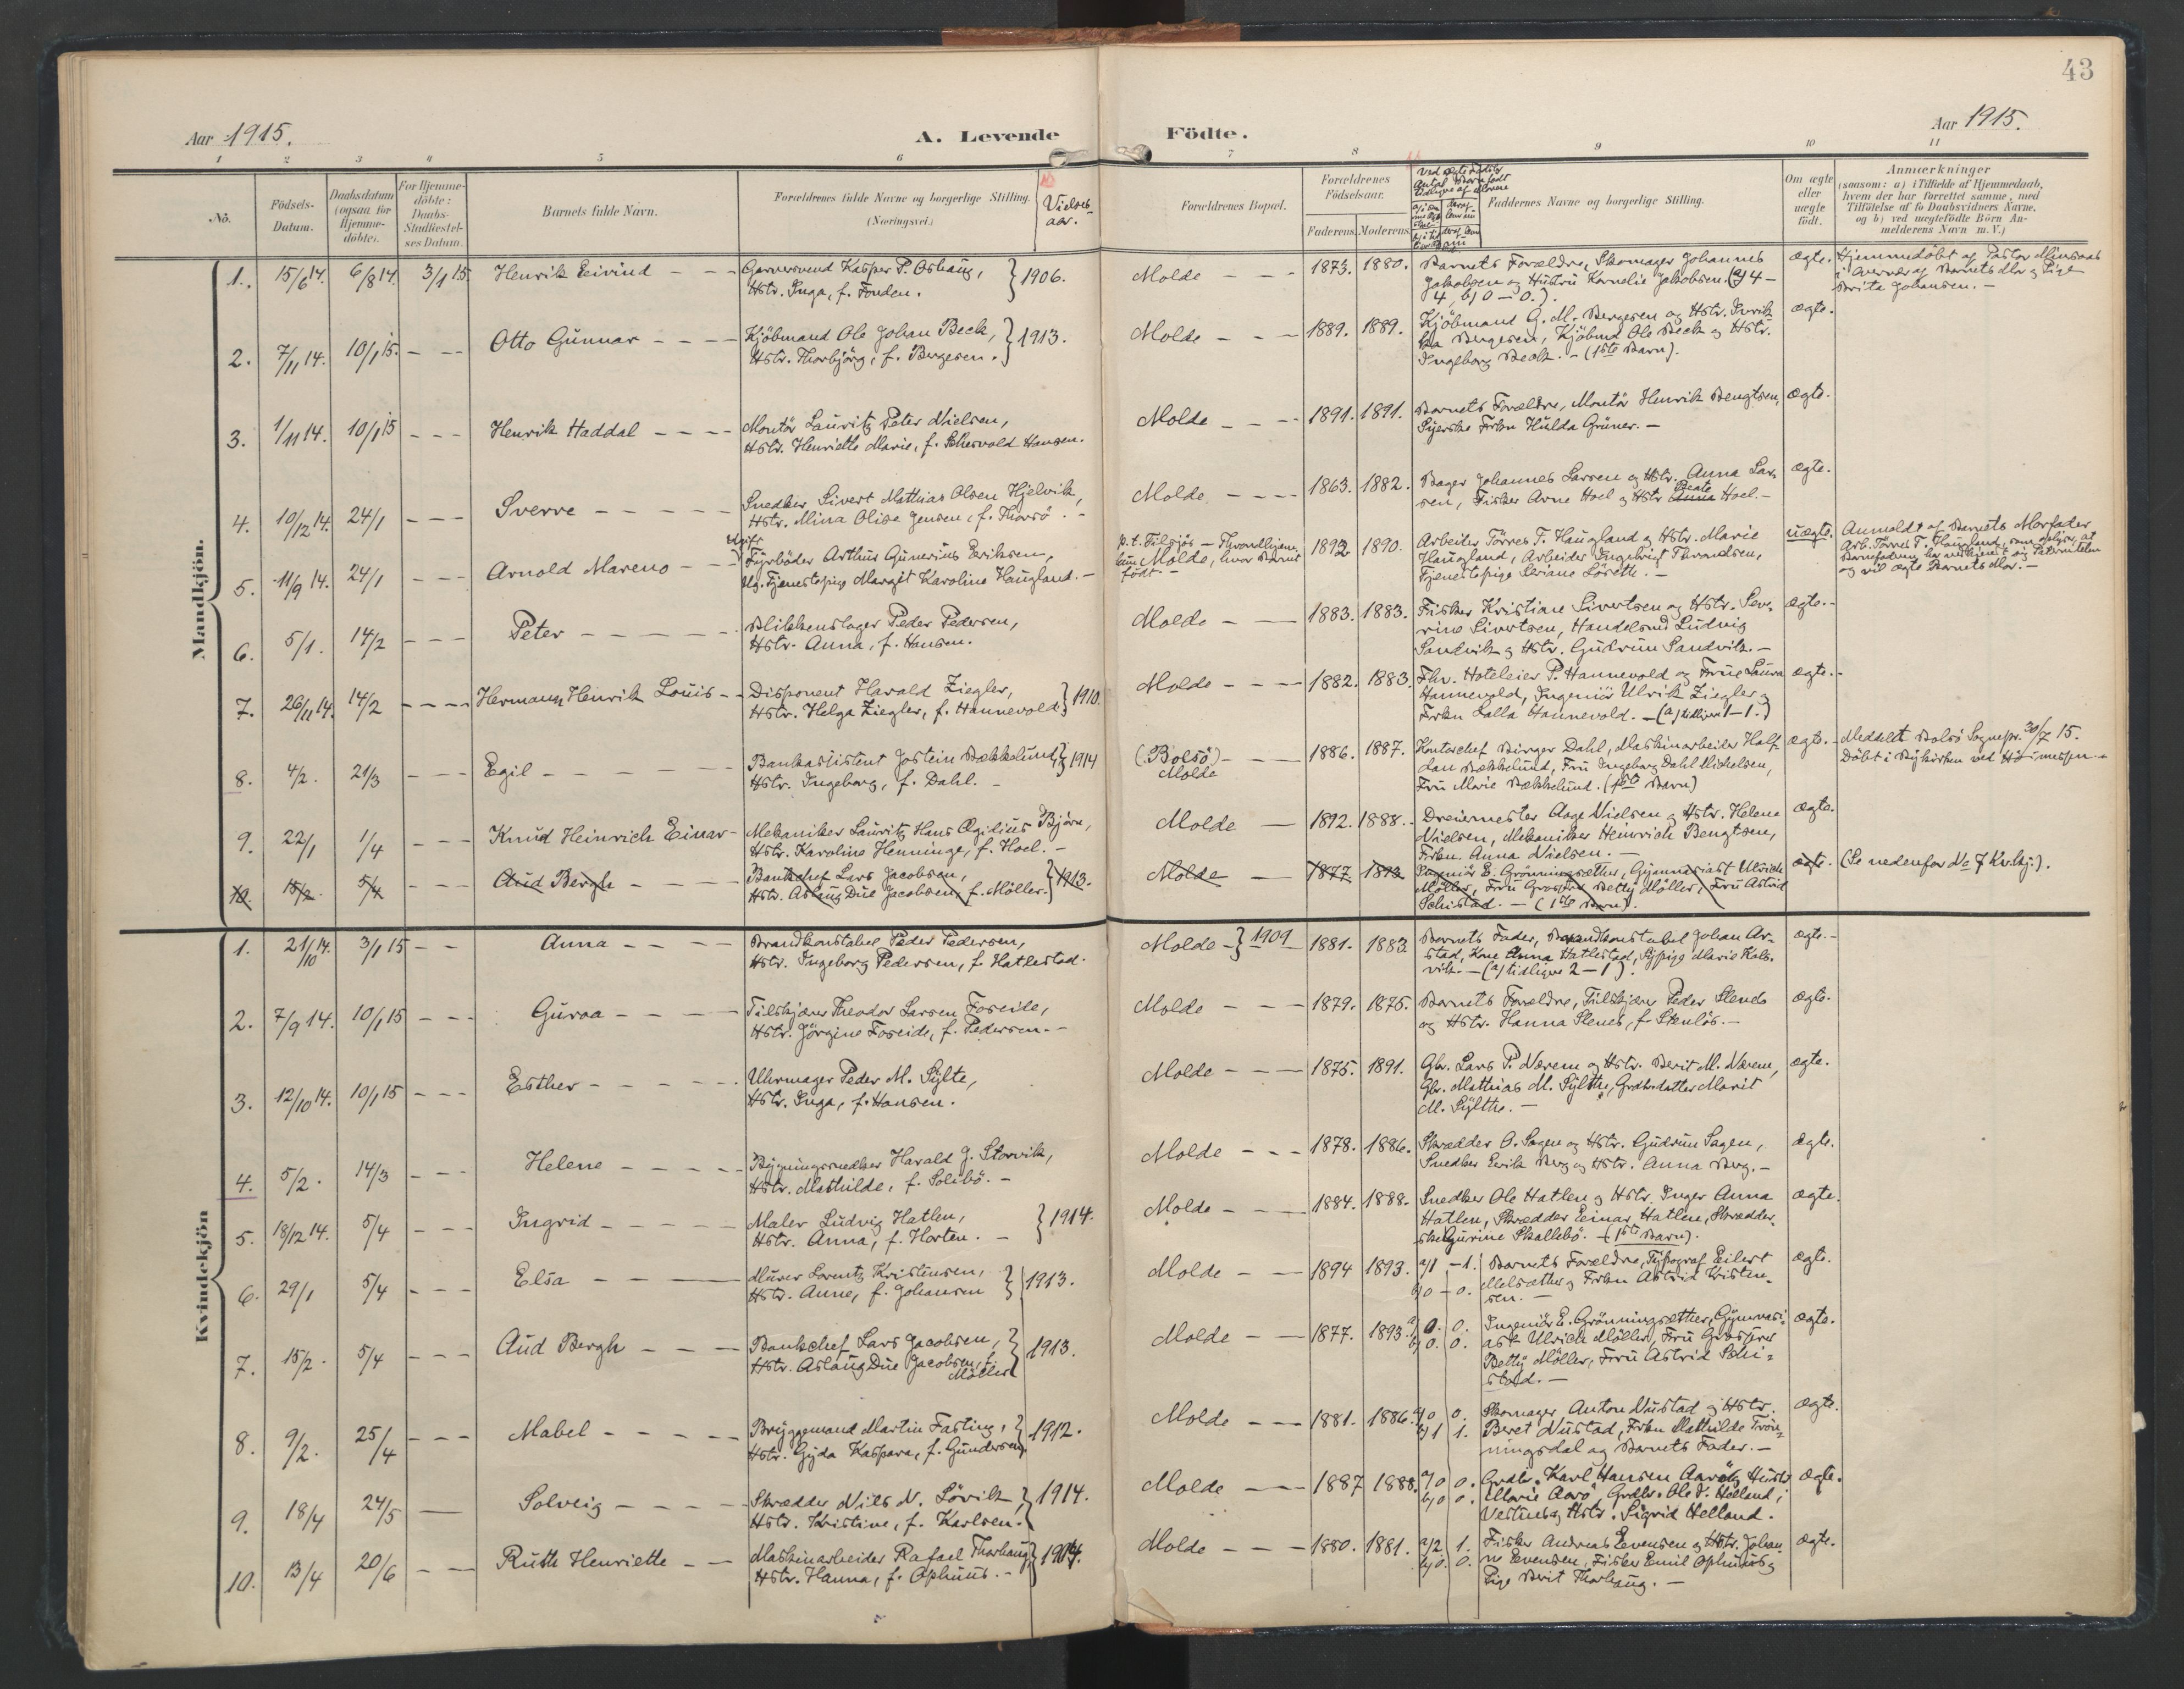 43
Aar 1915.
A. Levende Födte.
Aar 1915.
1 2 3 4 5 6 7 8 9 10 11
No.
Födsels-Datum.
Daabsdatum (ogsaa for Hjemme-döbte).
For Hjemme-döbte: Daabs-Stadfæstel-ses Datum.
Barnets fulde Navn.
Forældrenes fulde Navne og borgerlige Stilling. (Næringsvei.)
Vielses aar.
Forældrenes Bopæl.
Forældrenes Födselsaar.
Faderens. Moderens.
Faddernes Navne og borgerlige Stilling.
Om ægte eller uægte födt.
Anmærkninger
(saasom: a) i Tilfælde af Hjemmedaab,
hvem der har forrettet samme, med
Tilföielse af to Daabsvidners Navne,
og b) ved uægtefödte Börn An-
melderens Navn m. V.)
Mandkjön.
1. 15/6 14. 6/8 14. 3/1 15. Henrik Eivind
Garversvend Kasper P. Oshaug,
Hstr. Inga, f. Fonden. } 1906.
Molde 1873. 1880.
Barnets Forældre, Skomager Johannes
Jakobsen og Hustru Kornelie Jakobsen. (a) 4 –
4, b) 0 – 0.).
ægte.
Hjemmedöbt af Pastor
af Barnets Mor og Pige
Brite Johansen. –
2. 7/11 14. 10/1 15. Otto Gunnar
Kjöbmand Ole Johan Beck,
Hstr. Thorbjörg, f. Bergesen. } 1913.
Molde 1889. 1889.
Kjöbmand G. M. Bergesen og Hstr. Henrik
ka Bergesen, Kjöbmd Ole Beck og Hstr.
Ingeborg Beck. – (1ste Barn).
ægte.
3. 1/11 14. 10/1 15 Henrik Haddal
Montör Lauritz Peter Nielsen,
Hstr. Henriette Marie, f. Hansen.
Molde 1891. 1891.
Barnets Forældre, Montör Henrik Bengtsen,
Syerske Frkn Hulda Grüner. –
ægte.
4. 10/12 14. 24/1 Sverre
Snedker Sivert Mathias Olsen Hjelvik,
Hstr. Mina Olise Jensen, f. Thorsö. –
Molde 1863. 1882.
Bager Johannes Larsen og Hstr. Anna Lar-
sen, Fisker Arne Hoel og Hstr Beate Hoel. –
ægte.
5. 11/9 14. 24/1 Arnold Mareno
Ugift Fyrböder Arthur Gunerius Eriksen,
Ug. Tjenestepige Margit Karoline Haugland. –
p. t. – Throndhjem,
hun Molde, hvor Barnet
födt. –
1892 1890.
Arbeider Torres T. Haugland og Hstr. Marie
Haugland, Arbeider Ingebrigt Thrandsen,
Tjenestepige Löseth. –
uægte.
Anmeldt af Barnets Morfader
Arb. Torres T. Haugland, som oplyser, at
Barnefaderen har vedkjendt sig Paterniteten
og vil ægte Barnets Mor. –
6. 5/1. 14/2 Peter
Blikkenslager Peder Pedersen,
Hstr. Anna, f. Hansen.
Molde 1883. 1883.
Fisker Kristian Sivertsen og Hstr. Sev-
rine Sivertsen, Handelsmd Ludvig
Sandvik og Hstr. Gudrun Sandvik. –
ægte. –
7. 26/11 14. 14/2 Hermann Henrik Louis
Disponent Harald Ziegler,
Hstr. Helga Ziegler, f. Hannevold. } 1910.
Molde 1882. 1883.
Fhv. Hoteleier P. Hannevold og Frue Laura
Hannevold, Ingeniör Ulrik Ziegler og
Frkn Lalla Hannevold. – (a) tidligere 1 – 1.)
ægte. –
8. 4/2. 21/3 Egil
Bankassistent Jostein Bækkelund,
Hstr. Ingeborg, f. Dahl. – } 1914
(Bolsö) Molde 1886. 1887.
Kontorchef Birger Dahl, Maskinarbeider Half-
dan Bækkelund, Fru Ingeborg Dahl Mickelsen,
Fru Marie Bækkelund. (1ste Barn)
ægte. –
Meddelt Bolsö Sognepr. 30/7 15.
Döbt i Bykirken ved Höimessen
9. 22/1 1/4 Knud Heinrich Einar
Mekaniker Lauritz Hans Ægidius Björe,
Hstr. Karoline Henninge, f. Hoel. –
Molde 1892. 1888.
Dreiermester Aage Nielsen og Hstr. Helene
Nielsen, Mekaniker Heinrich Bengtsen,
Frkn. Anna Nielsen. –
ægte.
10. 15/2. 5/4 Aud Bergh
Bankchef Lars Jacobsen,
Hstr. Aslaug Due Jacobsen, f. Möller. } 1913.
Molde 1877. 1893
Ingeniör E. Grönningsæther, Gymnasiast Ulrich
Möller, Fru Grosserer Betty Möller, Fru Astrid
Schistad. – (1ste Barn).
ægte.
(Se nedenfor No 7 Kvkj.).
Kvindekjön
1. 21/10 14. 3/1 15 Anna
Brandkonstabel Peder Pedersen,
Hstr. Ingeborg Pedersen, f. Hatlestad.
Molde } 1909 1881. 1883
Barnets Fader, Brandkonstabel Johan Ar-
stad, Kone Anna Hatlestad, Sypige Marie Kols-
vik. – (a) tidligere 2 – 1).
ægte. –
2. 7/9 14. 10/1 15 Guroa
Fuldskjærer Theodor Larsen Foseide,
Hstr. Jörgine Foseide, f. Pedersen. –
Molde 1879. 1875.
Barnets Forældre, Peder Slenes
og Hstr. Hanna Slenes, f. Stenlös. –
ægte.
3. 12/10 14. 10/1 15 Esther
Uhrmager Peder M. Sylte,
Hstr. Inga, f. Hansen.
Molde 1875. 1891.
Gbr. Lars P. Nærem og Hstr. Berit M. Nærem,
Gbr. Mathias M. Sylthe, Grdbr.datter Marit
M. Sylthe. –
ægte.
4. 5/2. 14/3 Helene
Bygningssnedker Harald J. Storvik,
Hstr. Mathilde, f. Solibö. –
Molde 1878. 1886.
Skrædder O. Sagen og Hstr. Gudrun Sagen,
Snedker Eerik Berg og Hstr. Anna Berg. –
ægte.
5. 18/12 14. 5/4 Ingrid
Maler Ludvig Hatlen,
Hstr. Anna, f. Horten. – } 1914.
Molde 1884. 1888.
Snedker Ole Hatlen og Hstr. Inger Anna
Hatlen, Skrædder Einar Hatlen, Skrædder-
ske Gurine Skallebö. – (1ste Barn).
ægte.
6. 29/1 5/4 Elsa
Murer Lorentz Kristensen,
Hstr. Anne, f. Johansen } 1913.
Molde 1894 1893.
a) 1 – 1. b) 0 – 0.
Barnets Forældre, Typograf Eilert
Melsæther og Frkn Astrid Kristen-
sen. –
ægte.
7. 15/2. 5/4 Aud Bergh
Bankchef Lars Jacobsen,
Hstr. Aslaug Due Jacobsen, f.
Möller } 1913.
Molde 1877. 1893.
a) 0. 0. b) 0. 0.
Ingeniör E. Grönningsæther, Gymnasi-
ast Ulrich Möller, Fru Grosserer
Betty Möller, Fru Astrid Schi-
stad. –
ægte.
8. 9/2. 25/4 Mabel
Bryggemand Martin Fasting,
Hstr. Gyda Kaspara, f. Gundersen. } 1912.
Molde 1881. 1886.
a) 0 0. b) 1 1.
Skomager Anton Nustad og Hstr.
Beret Nustad, Frkn Mathilde Trön-
ningsdal og Barnets Fader. –
ægte.
9. 18/4 24/5 Solveig
Skrædder Nils N. Lövik,
Hstr. Kristine, f. Karlsen. } 1914.
Molde 1887 1888.
a) 0 0. b) 0 0.
Grdbr. Karl Hansen Aarö og Hustr
Marie Aarö, Grdbr. Ole T. Helland i
Vestnes og Hstr. Sigrid Helland.
ægte.
10. 13/4 20/6 Ruth Henriette
Maskinarbeider Rafael Thorhaug
Hstr. Hanna, f. Ophuus. –
Molde 1880. 1881.
a) 2 1. b) 0. 0.
Fisker Andreas Evensen og Hstr. Johan-
ne Evensen, Fisker Emil Ophuus og
Pige Berit Thorhaug. –
ægte.